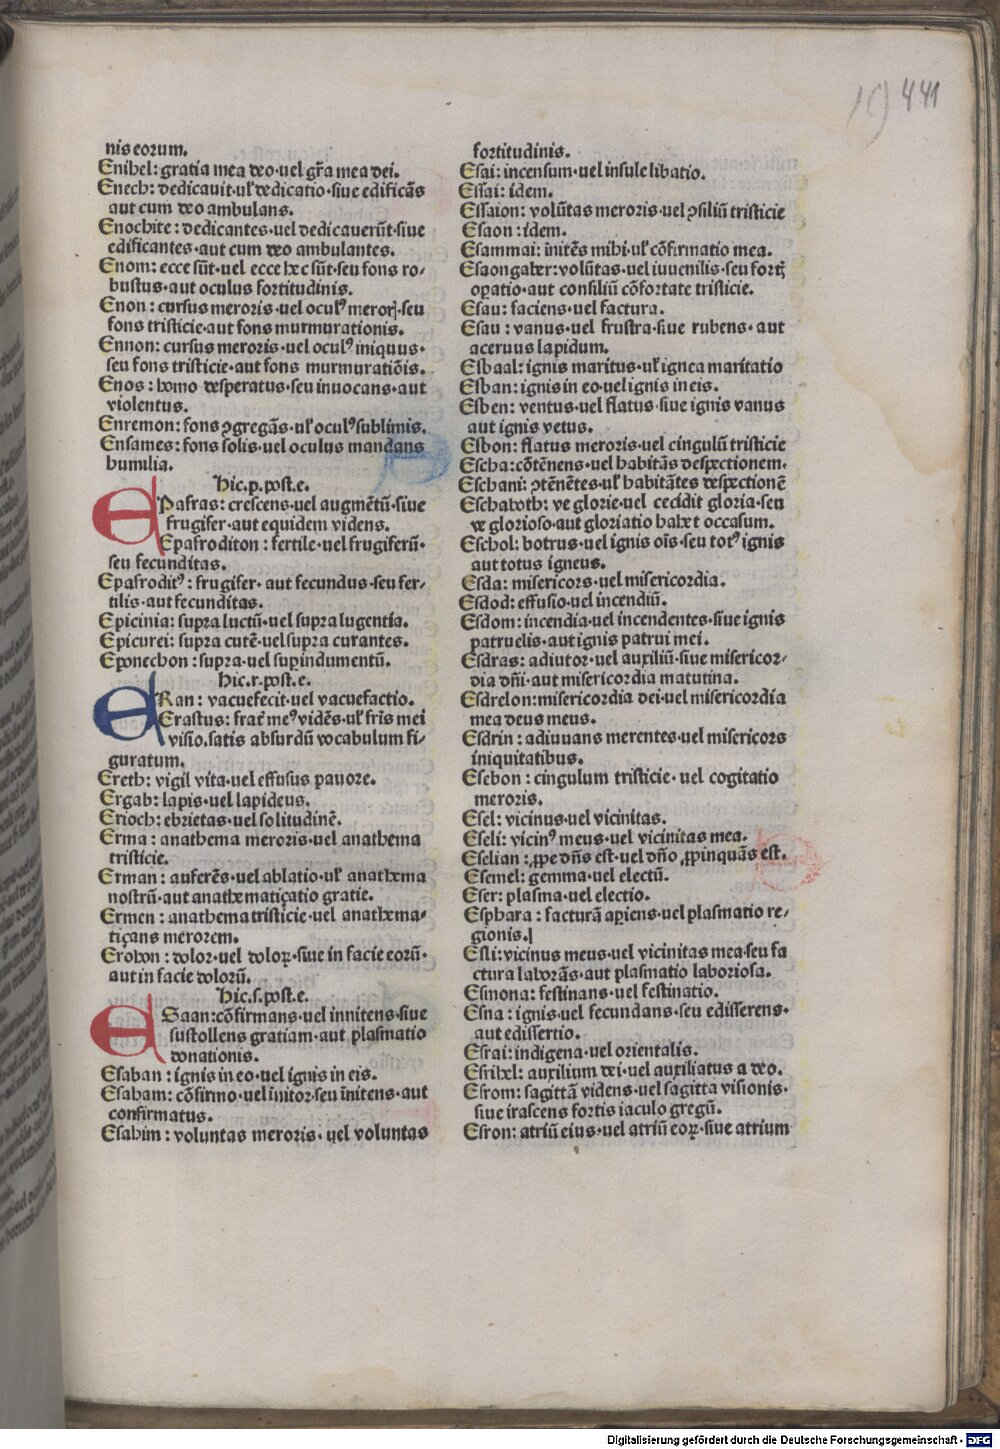 19 441
nis eorum.
Enihel: gratia mea deo·vel gr̃a mea dei.
Enech: dedicauit·ul̕ dedicatio·siue edificãs
aut cum deo ambulans.
Enochite: dedicantes·vel dedicauerũt·siue
edificantes·aut cum deo ambulantes.
Enom: ecce sũt·vel ecce hec sũt·seu fons ro/
bustus·aut oculus fortitudinis.
Enon: cursus meroris·vel oculꝰ meroꝝ·seu
fons tristicie·aut fons murmurationis.
Ennon: cursus meroris·vel oculꝰ iniquus·
seu fons tristicie·aut fons murmuratiõis.
Enos: homo desperatus·seu inuocans·aut
violentus.
Enremon: fons ꝯgregãs·ul̕ oculꝰ sublimis.
Ensames: fons solis·vel oculus mandans
humilia.
Hic.p.post.e.
EPafras: crescens·vel augmẽtũ·siue
frugifer·aut equidem videns.
Epafroditon: fertile·vel frugiferũ·
seu fecunditas.
Epafroditꝰ: frugifer· aut fecundus·seu fer/
tilis·aut fecunditas.
Epicinia: supra luctũ·vel supra lugentia.
Epicurei: supra cutẽ·vel supra curantes.
Eponechon: supra·vel suꝑindumentũ.
Hic.r.post.e.
ERan: vacuefecit·vel vacuefactio.
Erastus: frat̃ meꝰ vidẽs·ul̕ fr̃is mei
visio.satis absurdũ vocabulum fi/
guratum.
Ereth: vigil vita·vel effusus pauore.
Ergab: lapis·vel lapideus.
Erioch: ebrietas·vel solitudinẽ.
Erma: anathema meroris·vel anathema
tristicie.
Erman: auferẽs·vel ablatio·ul̕ anathema
nostrũ·aut anathematiçatio gratie.
Ermen: anathema tristicie·vel anathema·
tiçans merorem.
Erodon: dolor·vel doloꝝ·siue in facie eorũ·
aut in facie dolorũ.
Hic.s.post.e.
ESaan:cõfirmans·vel innitens·siue
sustollens gratiam·aut plasmatio
donationis.
Esaban: ignis in eo·vel ignis in eis.
Esabam: cõfirmo·vel initor·seu ĩnitens·aut
confirmatus.
Esabim: voluntas meroris· vel voluntas
fortitudinis.
Esai: incensum·vel insule libatio.
Essai: idem.
Essaion: volũtas meroris·vel ꝯsiliũ tristicie
Esaon: idem.
Esammai: initẽs mihi·ul̕ cõfirmatio mea.
Esaongaber:volũtas·vel iuuenilis·seu fortꝭ
oꝑatio·aut consiliũ cõfortate tristicie.
Esau: faciens·vel factura.
Esau: vanus·vel frustra·siue rubens· aut
aceruus lapidum.
Esbaal: ignis maritus·ul̕ ignea maritatio
Esban: ignis in eo·vel ignis in eis.
Esben: ventus·vel flatus·siue ignis vanus
aut ignis vetus.
Esbon: flatus meroris·vel cingulũ tristicie
Escha:cõtẽnens·vel habitãs despectionem.
Eschani: ꝯtẽnẽtes·ul̕ habitãtes despectionẽ
Eschaboth: ve glorie·vel cecidit gloria·seu
ve glorioso·aut gloriatio habet occasum.
Eschol: botrus·vel ignis oĩs·seu totꝰ ignis
aut totus igneus.
Esda: misericors·vel misericordia.
Esdod: effusio·vel incendiũ.
Esdom: incendia·vel incendentes·siue ignis
patruelis·aut ignis patrui mei.
Esdras: adiutor·vel auxiliũ·siue misericor/
dia dñi·aut misericordia matutina.
Esdrelon:misericordia dei·vel misericordia
mea deus meus.
Esdrin: adiuuans merentes·vel misericors
iniquitatibus.
Esebon: cingulum tristicie· vel cogitatio
meroris.
Esel: vicinus·vel vicinitas.
Eseli: vicinꝰ meus·vel vicinitas mea.
Eselian: ꝓpe dñs est·vel dño ꝓpinquãs est.
Esemel: gemma·vel electũ.
Eser: plasma·vel electio.
Esphara: facturã aꝑiens·vel plasmatio re/
gionis.
Esli:vicinus meus·vel vicinitas mea·seu fa
ctura laborãs·aut plasmatio laboriosa.
Esmona: festinans·vel festinatio.
Esna: ignis·vel fecundans·seu edisserens·
aut edissertio.
Esrai: indigena·vel orientalis.
Esrihel: auxilium dei·vel auxiliatus a deo.
Esrom: sagittã videns·vel sagitta visionis·
siue irascens fortis iaculo gregũ.
Esron: atriũ eius·vel atriũ eoꝝ·siue atrium
Digitalisierung gefördert durch die Deutsche Forschungsgemeinschaft - DFG